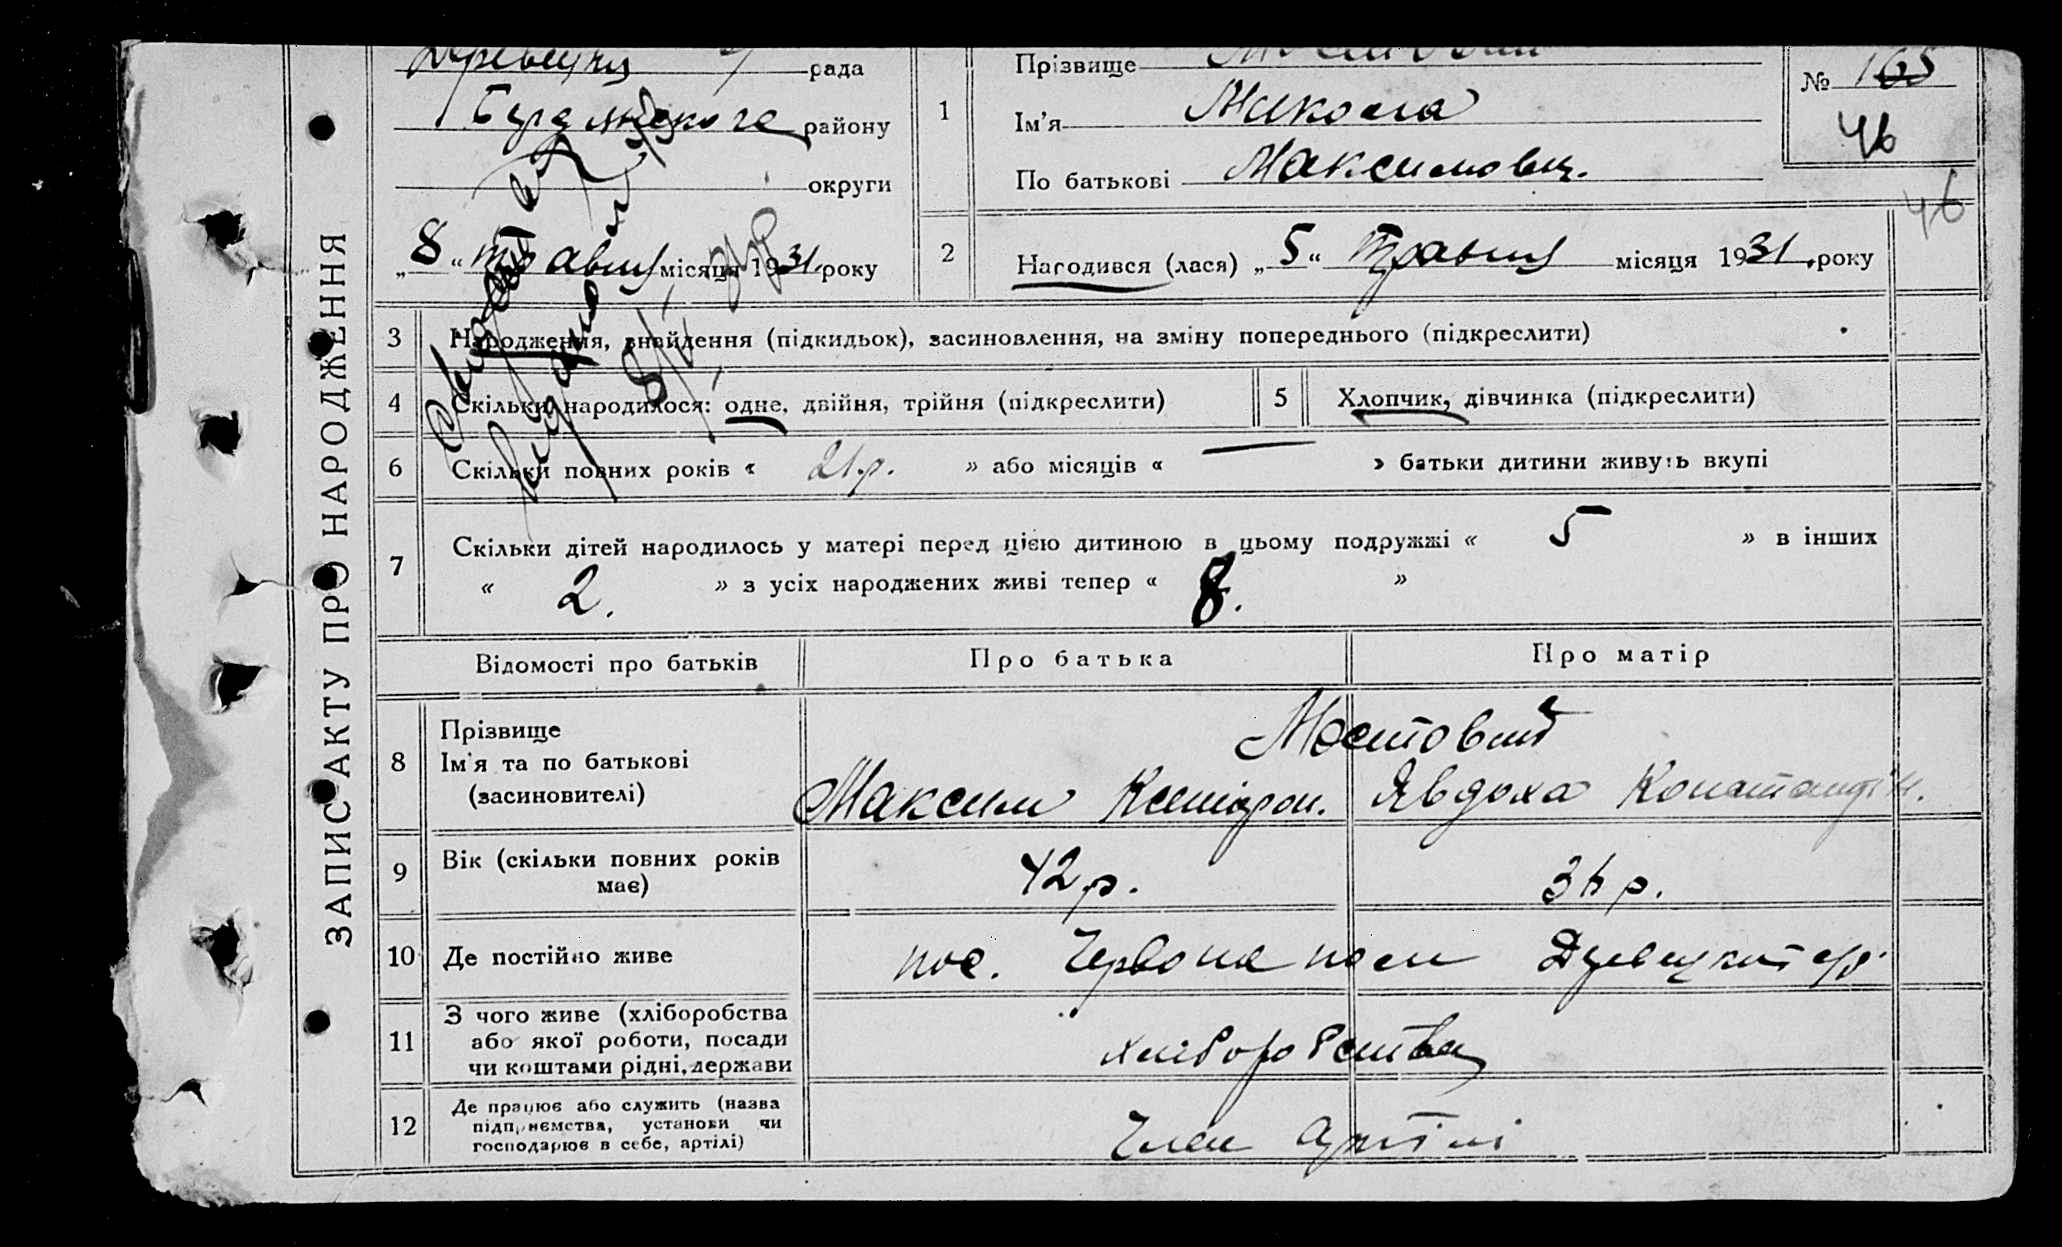 ЗАПИС АКТУ ПРО НАРОДЖЕННЯ
рада
району
округи
„8“ травня місяця 1931 року
1
Прізвище
Ім'я Микола
По батькові Максимович.
№ 165
46
46
2
Народився (лася) „5“ Травня місяця 1931. року
3 Народження, знайдення (підкидьок), засиновлення, на зміну попереднього (підкреслити)
4 Скільки народилося: одне, двійня, трійня (підкреслити)
5 Хлопчик, дівчинка (підкреслити)
6 Скільки повних років « 21 р. » або місяців « — » батьки дитини живуть вкупі
7 Скільки дітей народилось у матері перед цією дитиною в цьому подружжі « 5 » в інших
« 2. » з усіх народжених живі тепер « 8. »
Відомості про батьків Про батька Про матір
8 Прізвище
Ім'я та по батькові
(засиновителі)
Мостовий
Максим Явдоха Константін.
9 Вік (скільки повних років
має)
42 р. 36 р.
10 Де постійно живе
пос. Червоне поле
11 З чого живе (хліборобства
або якої роботи, посади
чи коштами рідні, держави
хліборобства
12 Де працює або служить (назва
підприємства, установи чи
господарює в себе, артілі)
Член Артілі